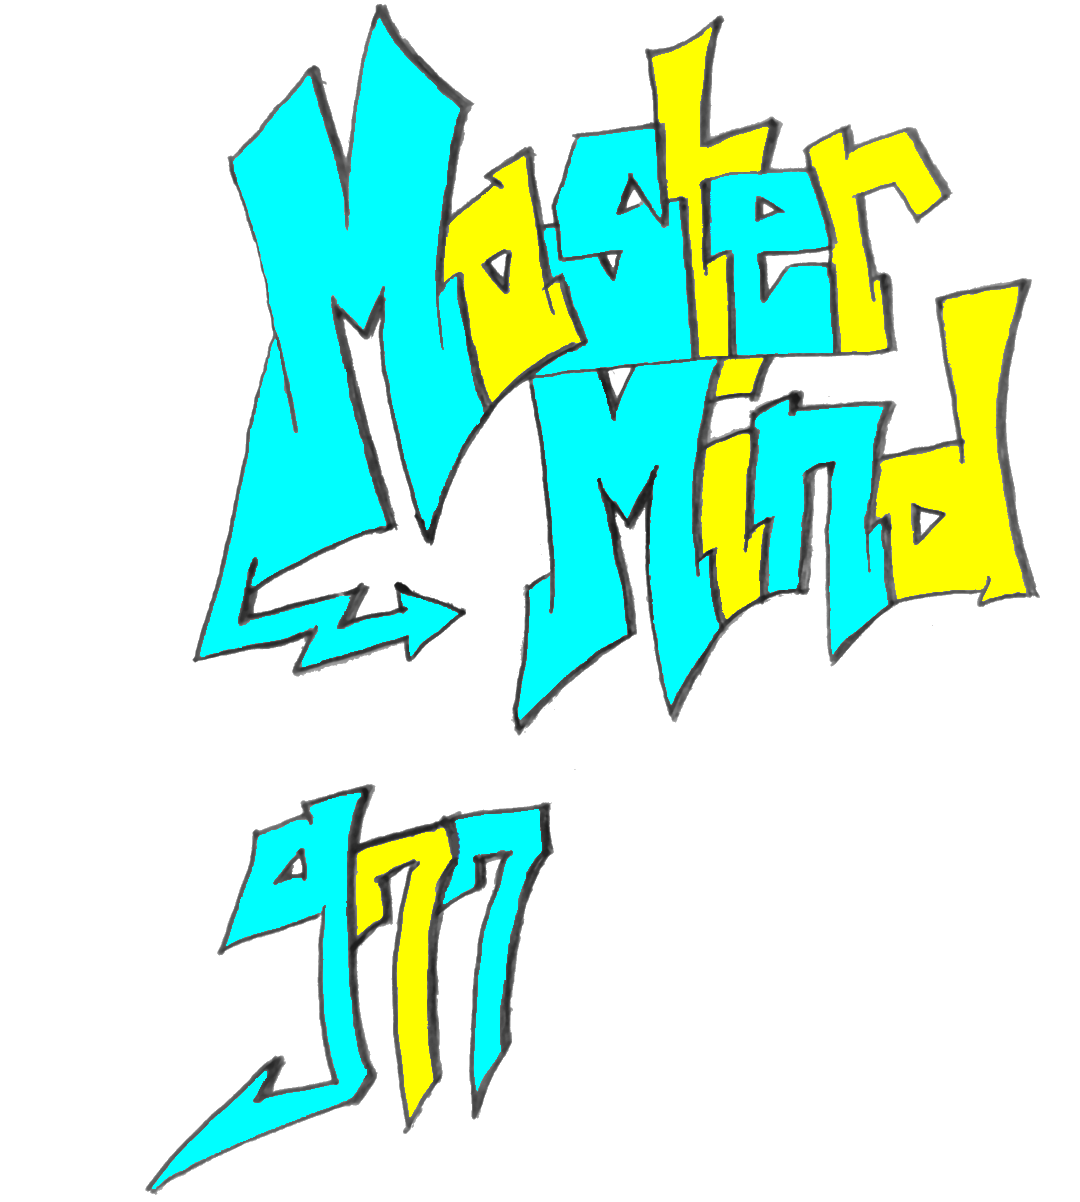 Master
Mind
977